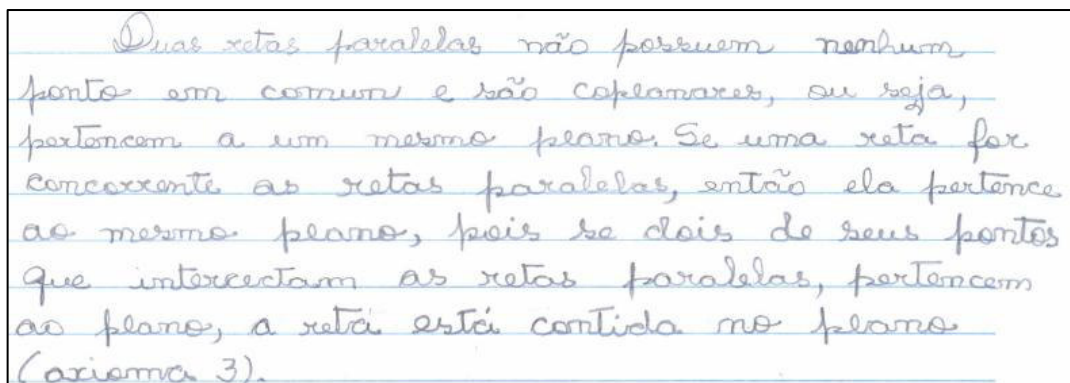 Duas retas paralelas não possuem nenhum
ponto em comun e são coplanares, ou seja,
pertencem a um mesmo plano. Se uma reta for
concorrente as retas paralelas, então ela pertence
ao mesmo plano, pois se dois de seus pontos
que intercectam as retas paralelas, pertencem
ao plano, a reta está contida no plano
(axioma 3).